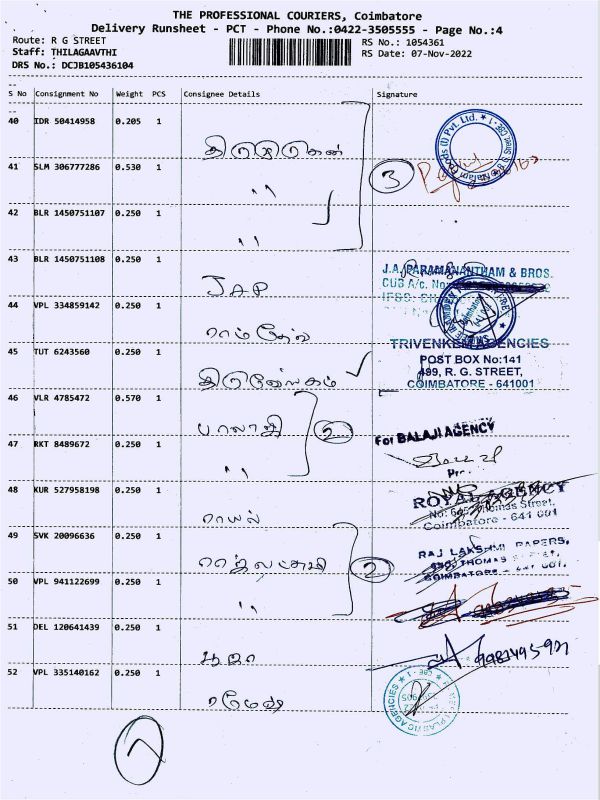 THE PROFESSIONAL COURIERS, Coimbatore
Delivery Runsheet - PCT - Phone No.:0422-3505555 - Page No.:4
Route: R G STREET
RS No.: 1054361
Staff: THILAGAAVTHI
RS Date: 07-Nov-2022
DRS No.: DCJB105436104
S No Consignment No Weight PCS Consignee Details Signature
40 IDR 50414958 0.205 1
41 SLM 306777286 0.530 1 ,,
3
42 BLR 1450751107 0.250 1 ,,
43 BLR 1450751108 0.250 1 JAP
J.A. PARAMANANTHAM & BROS.
CUB A/c. No:
44 VPL 334859142 0.250 1
TRIVENKEM AGENCIES
45 TUT 6243560 0.250 1
POST BOX No:141
499, R. G. STREET,
COIMBATORE - 641001
46 VLR 4785472 0.570 1 பாலாஜி
2
For BALAJI AGENCY
47 RKT 8489672 0.250 1 ,,
48 KUR 527958198 0.250 1 ராயல்
ROYAL AGENCY
Thomas Street,
Coimbatore - 641 001
49 SVK 20096636 0.250 1
2
RAJ LAKSHMI PAPERS,
THOMAS STREET,
COIMBATORE
50 VPL 941122699 0.250 1 ,,
51 DEL 120641439 0.250 1 பூஜா
52 VPL 335140162 0.250 1 ரமேஷ்
PLASTIC AGENCIES
7